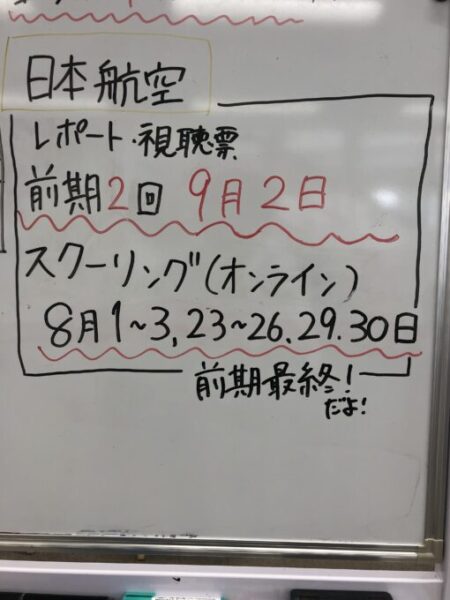 日本航空
レポート・視聴票
前期2回 9月2日
スクーリング(オンライン)
8月1~3,23~26.29.30日
前期最終!
だよ!